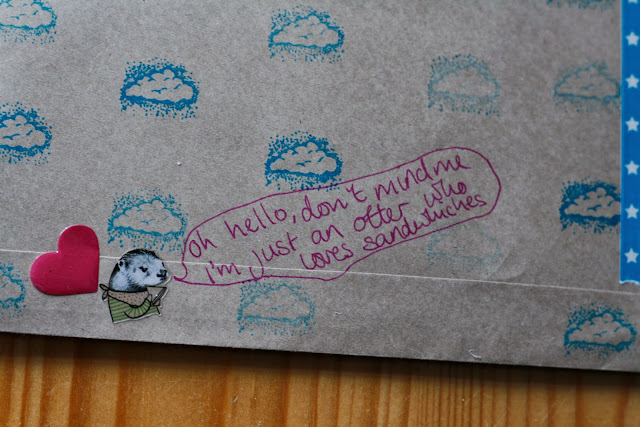 oh hello, don't mind me
i'm just an otter who
loves sandwiches